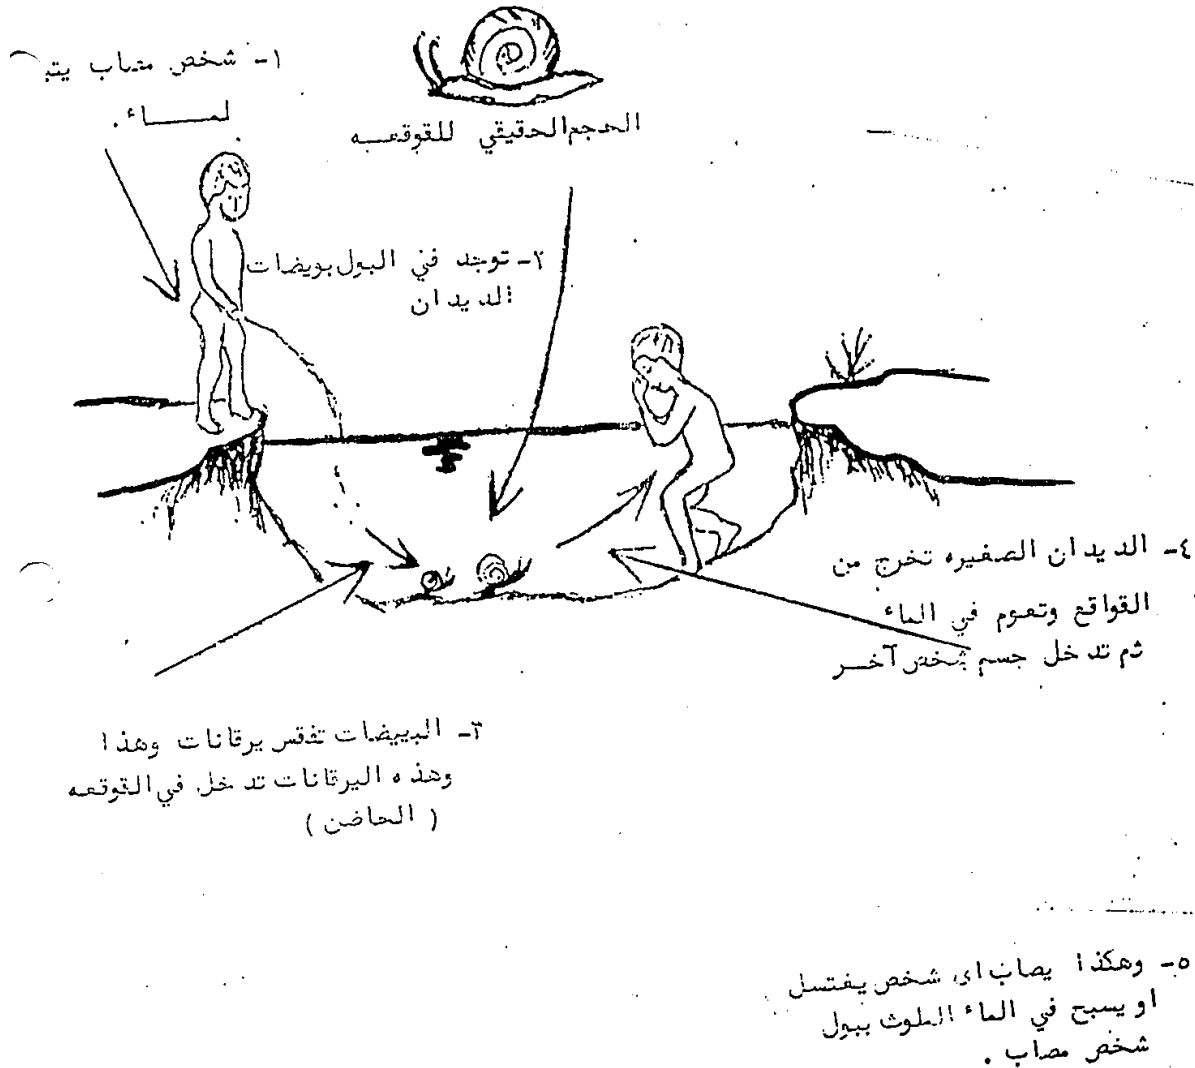 ١- شخص مصاب يتبـ
لمـــاء.
الحجم الحقيقي للقوقعـه
٢- توجد في البول بويضات
الديدان
٤- الديدان الصغيره تخرج من
القواقع وتعوم في الماء
ثم تدخل جسم شخص آخـر
٣- البييضات تفقس يرقانات وهذا
وهذه اليرقانات تدخل في القوقعه
( الحاضن )
٥- وهكذا يصاب اى شخص يغتسل
او يسبح في الماء الملوث ببول
شخص مصاب .